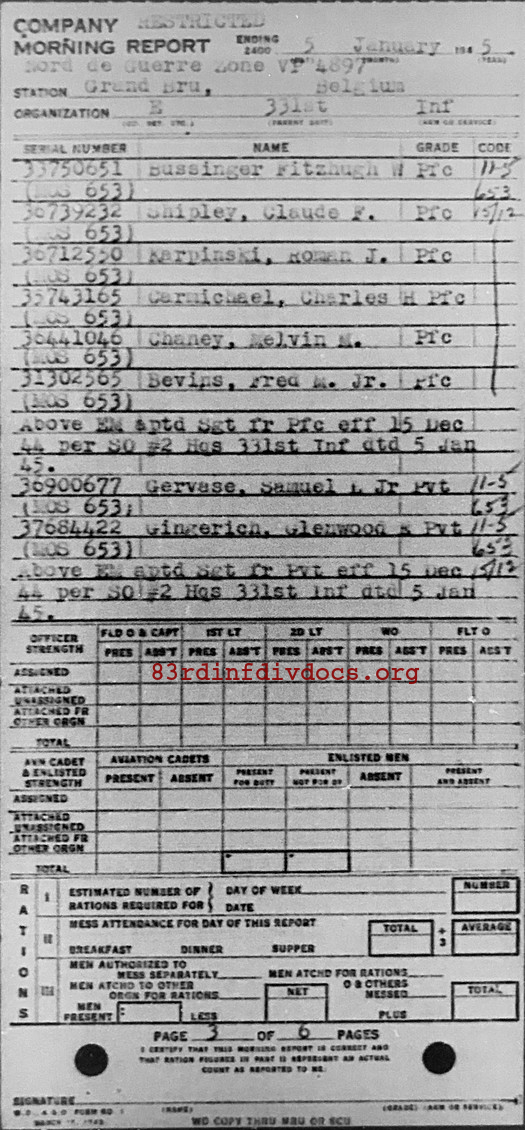 COMPANY RESTRICTED
MORNING REPORT ENDING 2400 5 January 194 5
Nord de Guerre Zone VP 4897 (MONTH) (YEAR)
STATION Grand Bru, Belgium
ORGANIZATION E 331st Inf
(CO. DET. ETC.) (PARENT UNIT) (ARM OR SERVICE)
SERIAL NUMBER NAME GRADE CODE
33750651 Bussinger Fitzhugh W Pfc 11-5
(MOS 653) 653
36739232 Shipley, Claude F. Pfc 15/12
(MOS 653)
36712550 Karpinski, Roman J. Pfc
(MOS 653)
35743165 Carmichael, Charles H Pfc
(MOS 653)
36441046 Chaney, Melvin M. Pfc
(MOS 653)
31302565 Bevins, Fred M. Jr. Pfc
(MOS 653)
Above EM aptd Sgt fr Pfc eff 15 Dec
44 per SO #2 Hqs 331st Inf dtd 5 Jan
45.
36900677 Gervase, Samuel L Jr Pvt 11-5
(MOS 653) 653
37684422 Gingerich, Glenwood R Pvt 11-5
(MOS 653) 653
Above EM aptd Sgt fr Pvt eff 15 Dec 15/12
44 per SO #2 Hqs 331st Inf dtd 5 Jan
45.
OFFICER STRENGTH FLD O & CAPT 1ST LT 2D LT WO FLT O
PRES ABS'T PRES ABS'T PRES ABS'T PRES ABS'T PRES ABS'T
ASSIGNED
83rdinfdivdocs.org
ATTACHED UNASSIGNED
ATTACHED FR OTHER ORGN
TOTAL
AVN CADET & ENLISTED STRENGTH AVIATION CADETS ENLISTED MEN
PRESENT ABSENT PRESENT FOR DUTY PRESENT NOT FOR DY ABSENT PRESENT AND ABSENT
ASSIGNED
ATTACHED UNASSIGNED
ATTACHED FR OTHER ORGN
TOTAL
RATIONS
I ESTIMATED NUMBER OF RATIONS REQUIRED FOR { DAY OF WEEK NUMBER
DATE
II MESS ATTENDANCE FOR DAY OF THIS REPORT TOTAL ÷ 3 AVERAGE
BREAKFAST DINNER SUPPER
III MEN AUTHORIZED TO MESS SEPARATELY MEN ATCHD FOR RATIONS
MEN ATCHD TO OTHER ORGN FOR RATIONS NET O & OTHERS MESSED TOTAL
MEN PRESENT LESS PLUS
PAGE 3 OF 6 PAGES
I CERTIFY THAT THIS MORNING REPORT IS CORRECT AND
THAT RATION FIGURES IN PART III REPRESENT AN ACTUAL
COUNT AS REPORTED TO ME.
SIGNATURE
W.D., A.G.O. FORM NO. 1 (NAME) (GRADE) (ARM OR SERVICE)
WD COPY THRU MRU OR SCU